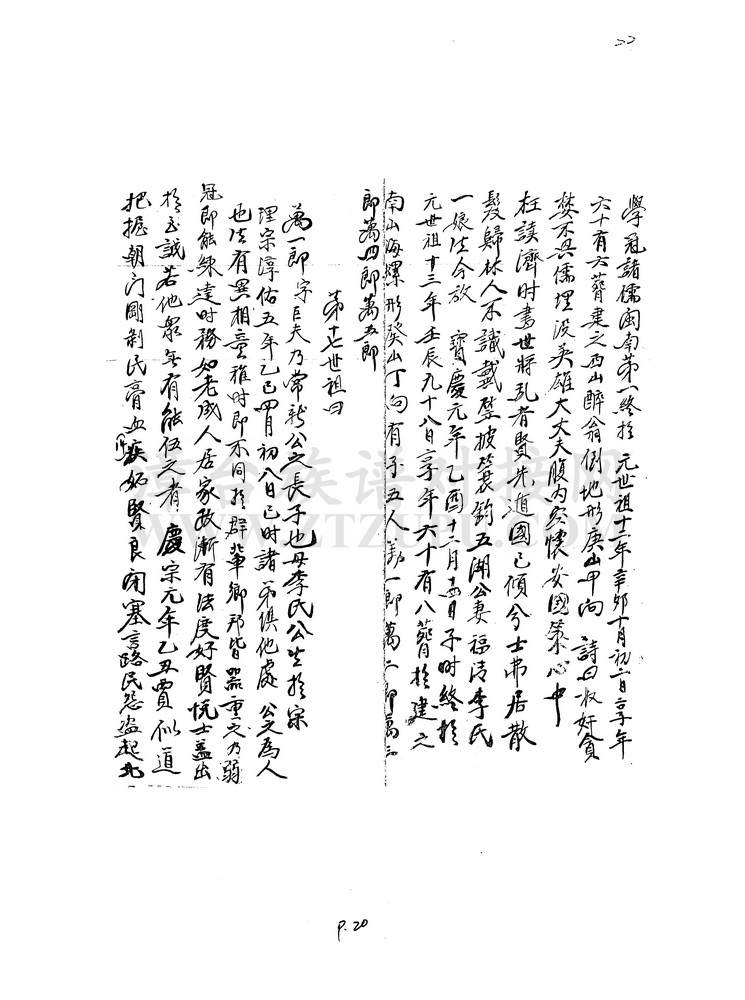 22
學冠諸儒閩南第一終於 元世祖十二年辛卯十月初二日享年
六十有六葬建之西山醉翁倒地形庚山甲向 詩曰 奸貪
婪不與儒埋沒英雄大丈夫腹內空懷安國策心中
枉談濟时書世將乱者賢先遁國已傾兮士帯居散
髮歸林人不識戴笠披簑釣五湖公妻福清李氏
一娘法合放 寶慶元年乙酉十二月 日子时終於
元世祖十三年壬辰九十八日享年六十有八葬於建之
南山海螺形癸山丁向有子五人萬一郎萬二郎萬三
郎萬四郎萬五郎
第十七世祖曰
萬一郎字巨夫乃常 公之長子也母李氏公生於宋
理宗淳佑五年乙巳四月初八日巳时諸弟俱他處 公之為人
也法有異相童稚时即不同於群輩鄉邦皆器重之乃弱
冠即能練達时務如老成人居家政漸有法度好賢悦士盖出
於至誠若他眾無有能伍之者 慶宗元年乙丑賈似道
把握朝门剛剝民膏血嫉妬賢良閉塞言路民怨盗起北
漳台族谱对接网
WWW.ZTZUPU.COM
P.20